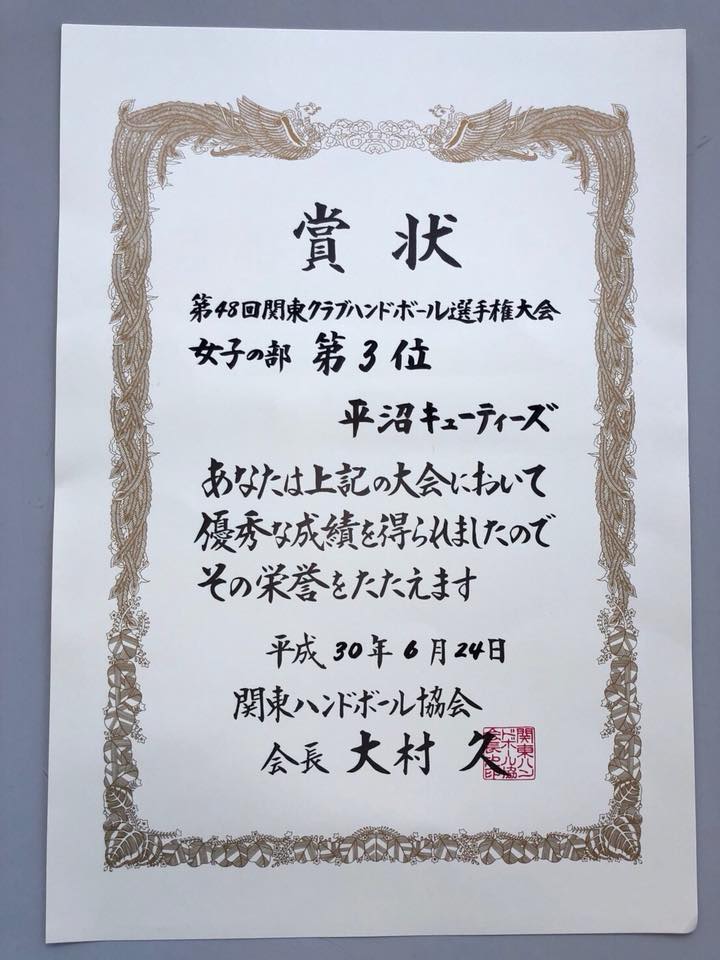 賞状
第48回関東クラブハンドボール選手権大会
女子の部 第3位
平沼キューティーズ
あなたは上記の大会において
優秀な成績を得られましたので
その栄誉をたたえます
平成30年6月24日
関東ハンドボール協会
会長 大村 久
関東ハン
ドボール協
会長之印